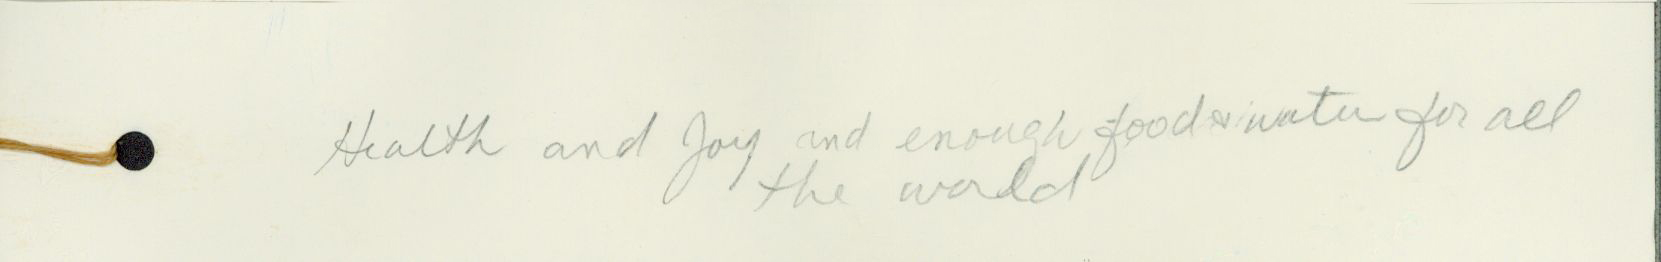 Health and Joy and enough food & water for all
the world